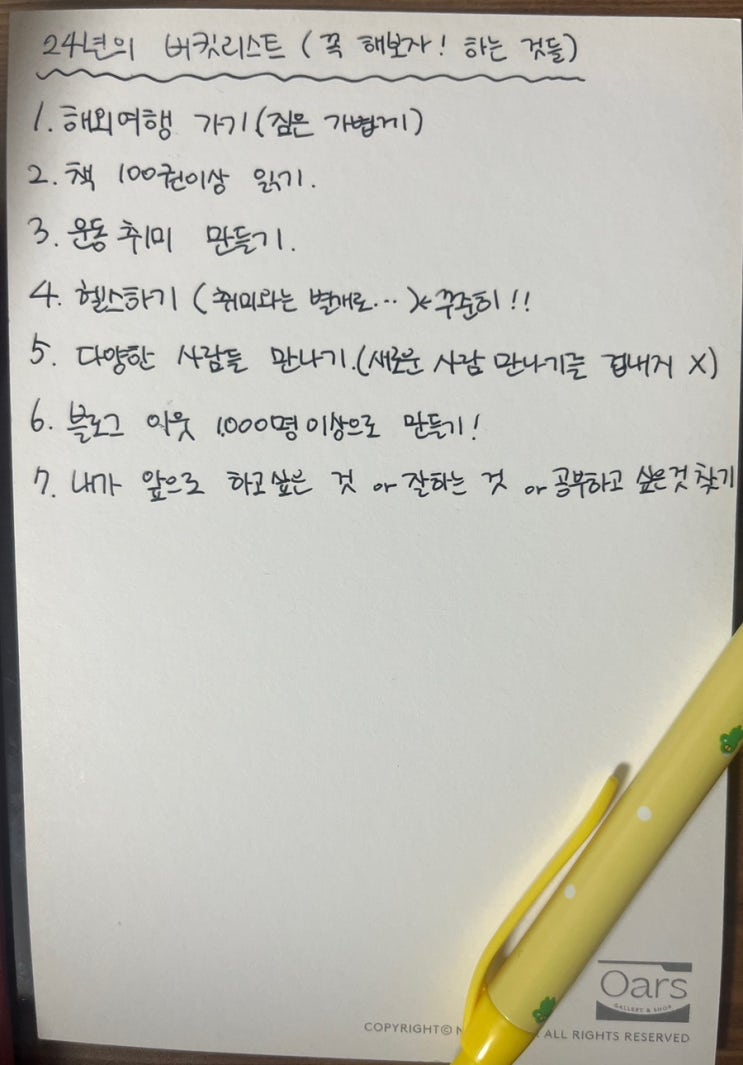 24년의 버킷리스트 (꼭 해보자! 하는 것들)
1. 해외여행 가기 (짐은 가볍게)
2. 책 100권이상 읽기.
3. 운동 취미 만들기.
4. 헬스하기 (취미와는 별개로...)← 꾸준히!!
5. 다양한 사람들 만나기.(새로운 사람 만나기를 겁내지 X)
6. 블로그 이웃 1,000명 이상으로 만들기!
7. 내가 앞으로 하고싶은 것 or 잘하는 것 or 공부하고 싶은것 찾기
Oars
GALLERY & SHOP
COPYRIGHT© ALL RIGHTS RESERVED